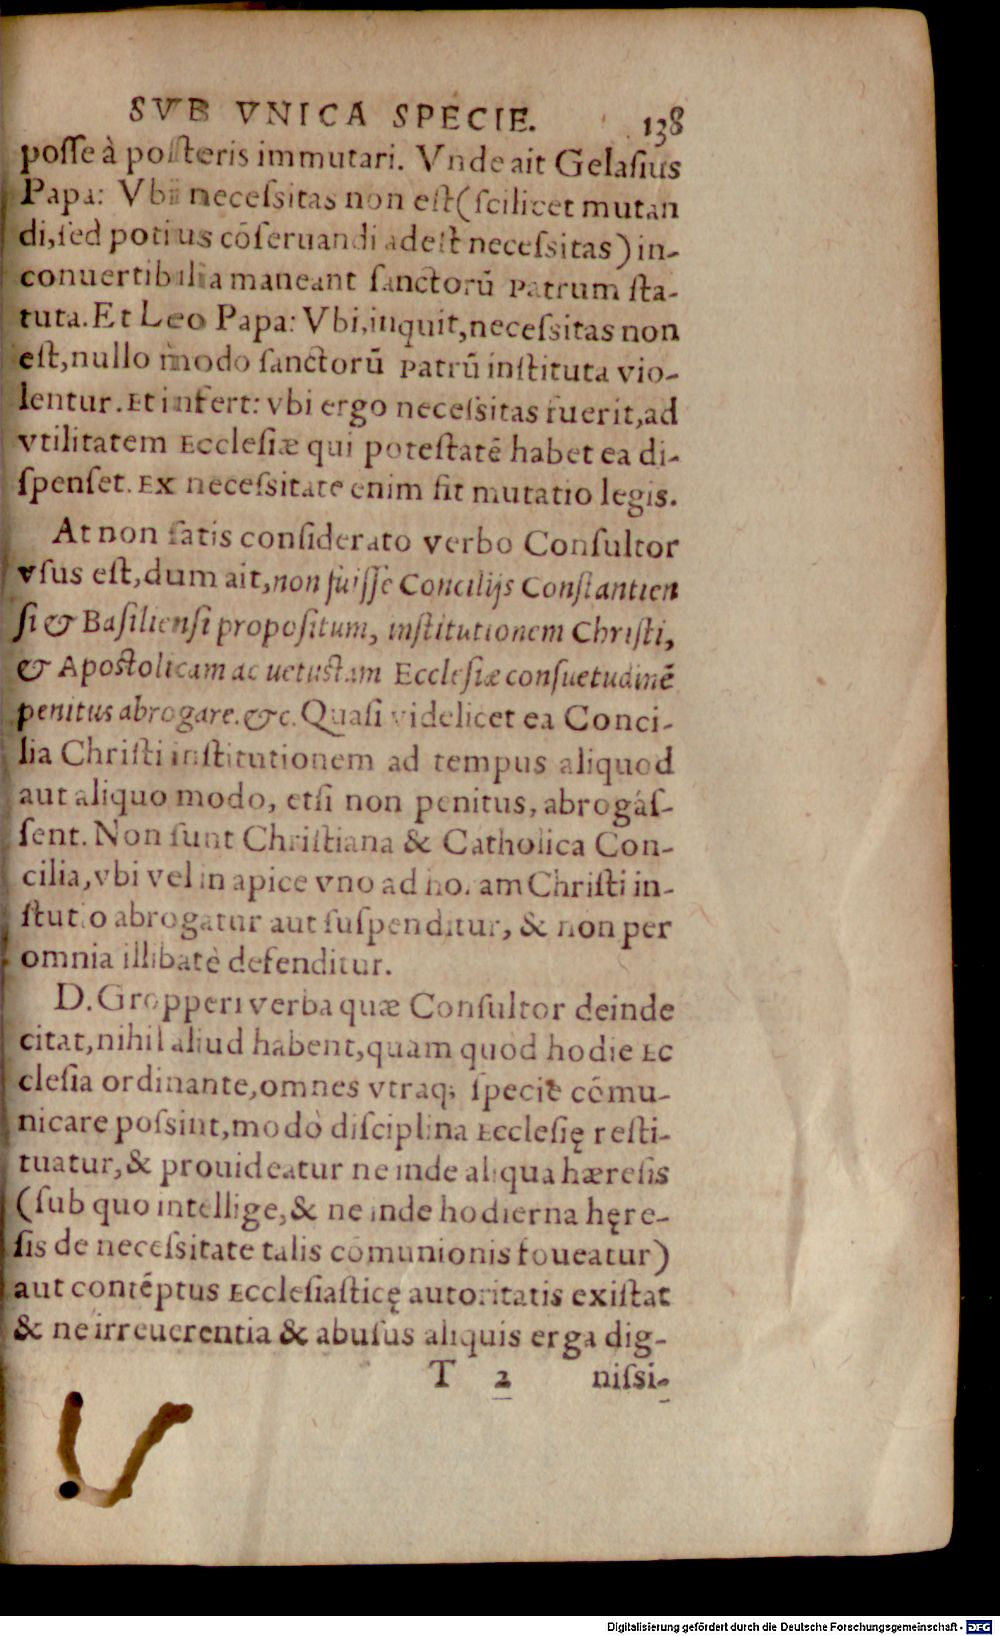 SVB VNICA SPECIE. 138
posse à posteris immutari. Vnde ait Gelasius
Papa: Vbi necessitas non est (scilicet mutan
di, sed potius cōseruandi adest necessitas) in-
conuertibilia maneant sanctorū Patrum sta-
tuta. Et Leo Papa: Vbi, inquit, necessitas non
est, nullo modo sanctorū Patrū instituta vio-
lentur. Et infert: vbi ergo necessitas fuerit, ad
vtilitatem Ecclesiæ qui potestatē habet ea di-
spenset. Ex necessitate enim fit mutatio legis.
At non satis considerato verbo Consultor
vsus est, dum ait, non fuisse Concilijs Constantien
si & Basiliensi propositum, institutionem Christi,
& Apostolicam ac uetustam Ecclesiæ consuetudinē
penitus abrogare. &c. Quasi videlicet ea Conci-
lia Christi institutionem ad tempus aliquod
aut aliquo modo, etsi non penitus, abrogás-
sent. Non sunt Christiana & Catholica Con-
cilia, vbi vel in apice vno ad ho. am Christi in-
stutio abrogatur aut suspenditur, & non per
omnia illibatè defenditur.
D. Gropperi verba quæ Consultor deinde
citat, nihil aliud habent, quam quod hodie Ec
clesia ordinante, omnes vtraq; specie cōmu-
nicare possint, modò disciplina Ecclesię resti-
tuatur, & prouideatur ne inde aliqua hæresis
(sub quo intellige, & ne inde hodierna hęre-
sis de necessitate talis cōmunionis foueatur)
aut contēptus Ecclesiasticę autoritatis existat
& ne irreuerentia & abusus aliquis erga dig-
T 2 nissi-
Digitalisierung gefördert durch die Deutsche Forschungsgemeinschaft - DFG